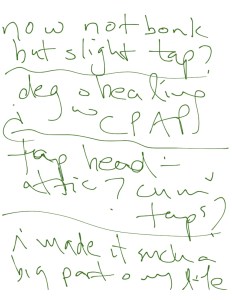 now not bonk
but slight tap?
deg o healing
w CPAP
tap head =
attic? cum
taps?
i made it such a
big part o my life